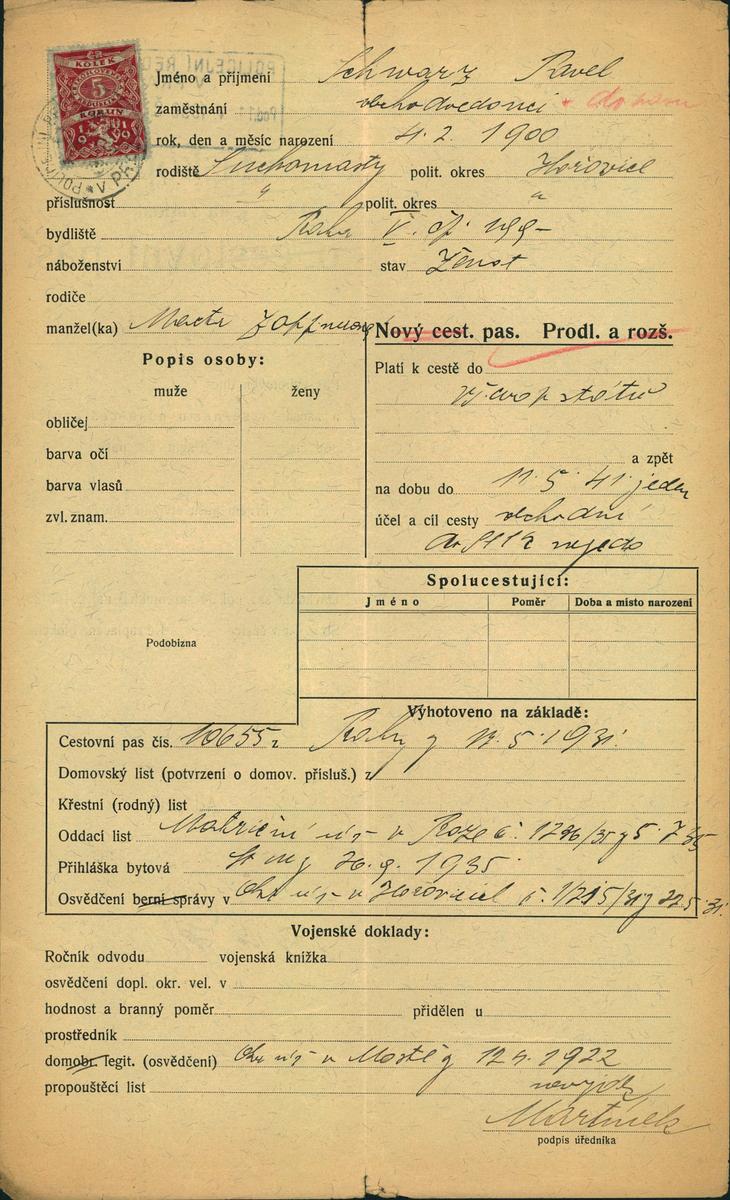 KOLEK
5
KORUN
1919
Jméno a příjmení Schwarz Pavel
zaměstnání
rok, den a měsíc narození 4. 2. 1900
rodiště Suchomasty polit. okres Hořovice
příslušnost " polit. okres "
bydliště Praha V. čp. 199-
náboženství stav ženat
rodiče
manžel(ka) Marta
Nový cest. pas. Prodl. a rozš.
Popis osoby:
muže ženy
obličej
barva očí
barva vlasů
zvl. znam.
Platí k cestě do
států
a zpět
na dobu do 11. 5. 41 jeden
účel a cíl cesty obchodní
do
Spolucestující:
Jméno Poměr Doba a místo narození
Podobizna
Vyhotoveno na základě:
Cestovní pas čís. 10655 Prahy 5. 1931.
Domovský list (potvrzení o domov. přísluš.) z
Křestní (rodný) list
Oddací list Matriční úř v Praze č. 1296/35 z 5. 7. 35
Přihláška bytová 26. 9. 1935.
Osvědčení berní správy v Okr úř v Hořovicích č. 1/215/31 z 22. 5. 31.
Vojenské doklady:
Ročník odvodu vojenská knížka
osvědčení dopl. okr. vel. v
hodnost a branný poměr přidělen u
prostředník
domobr. legit. (osvědčení) Okr úř v Mostě 1922
propouštěcí list
Martínek
podpis úředníka